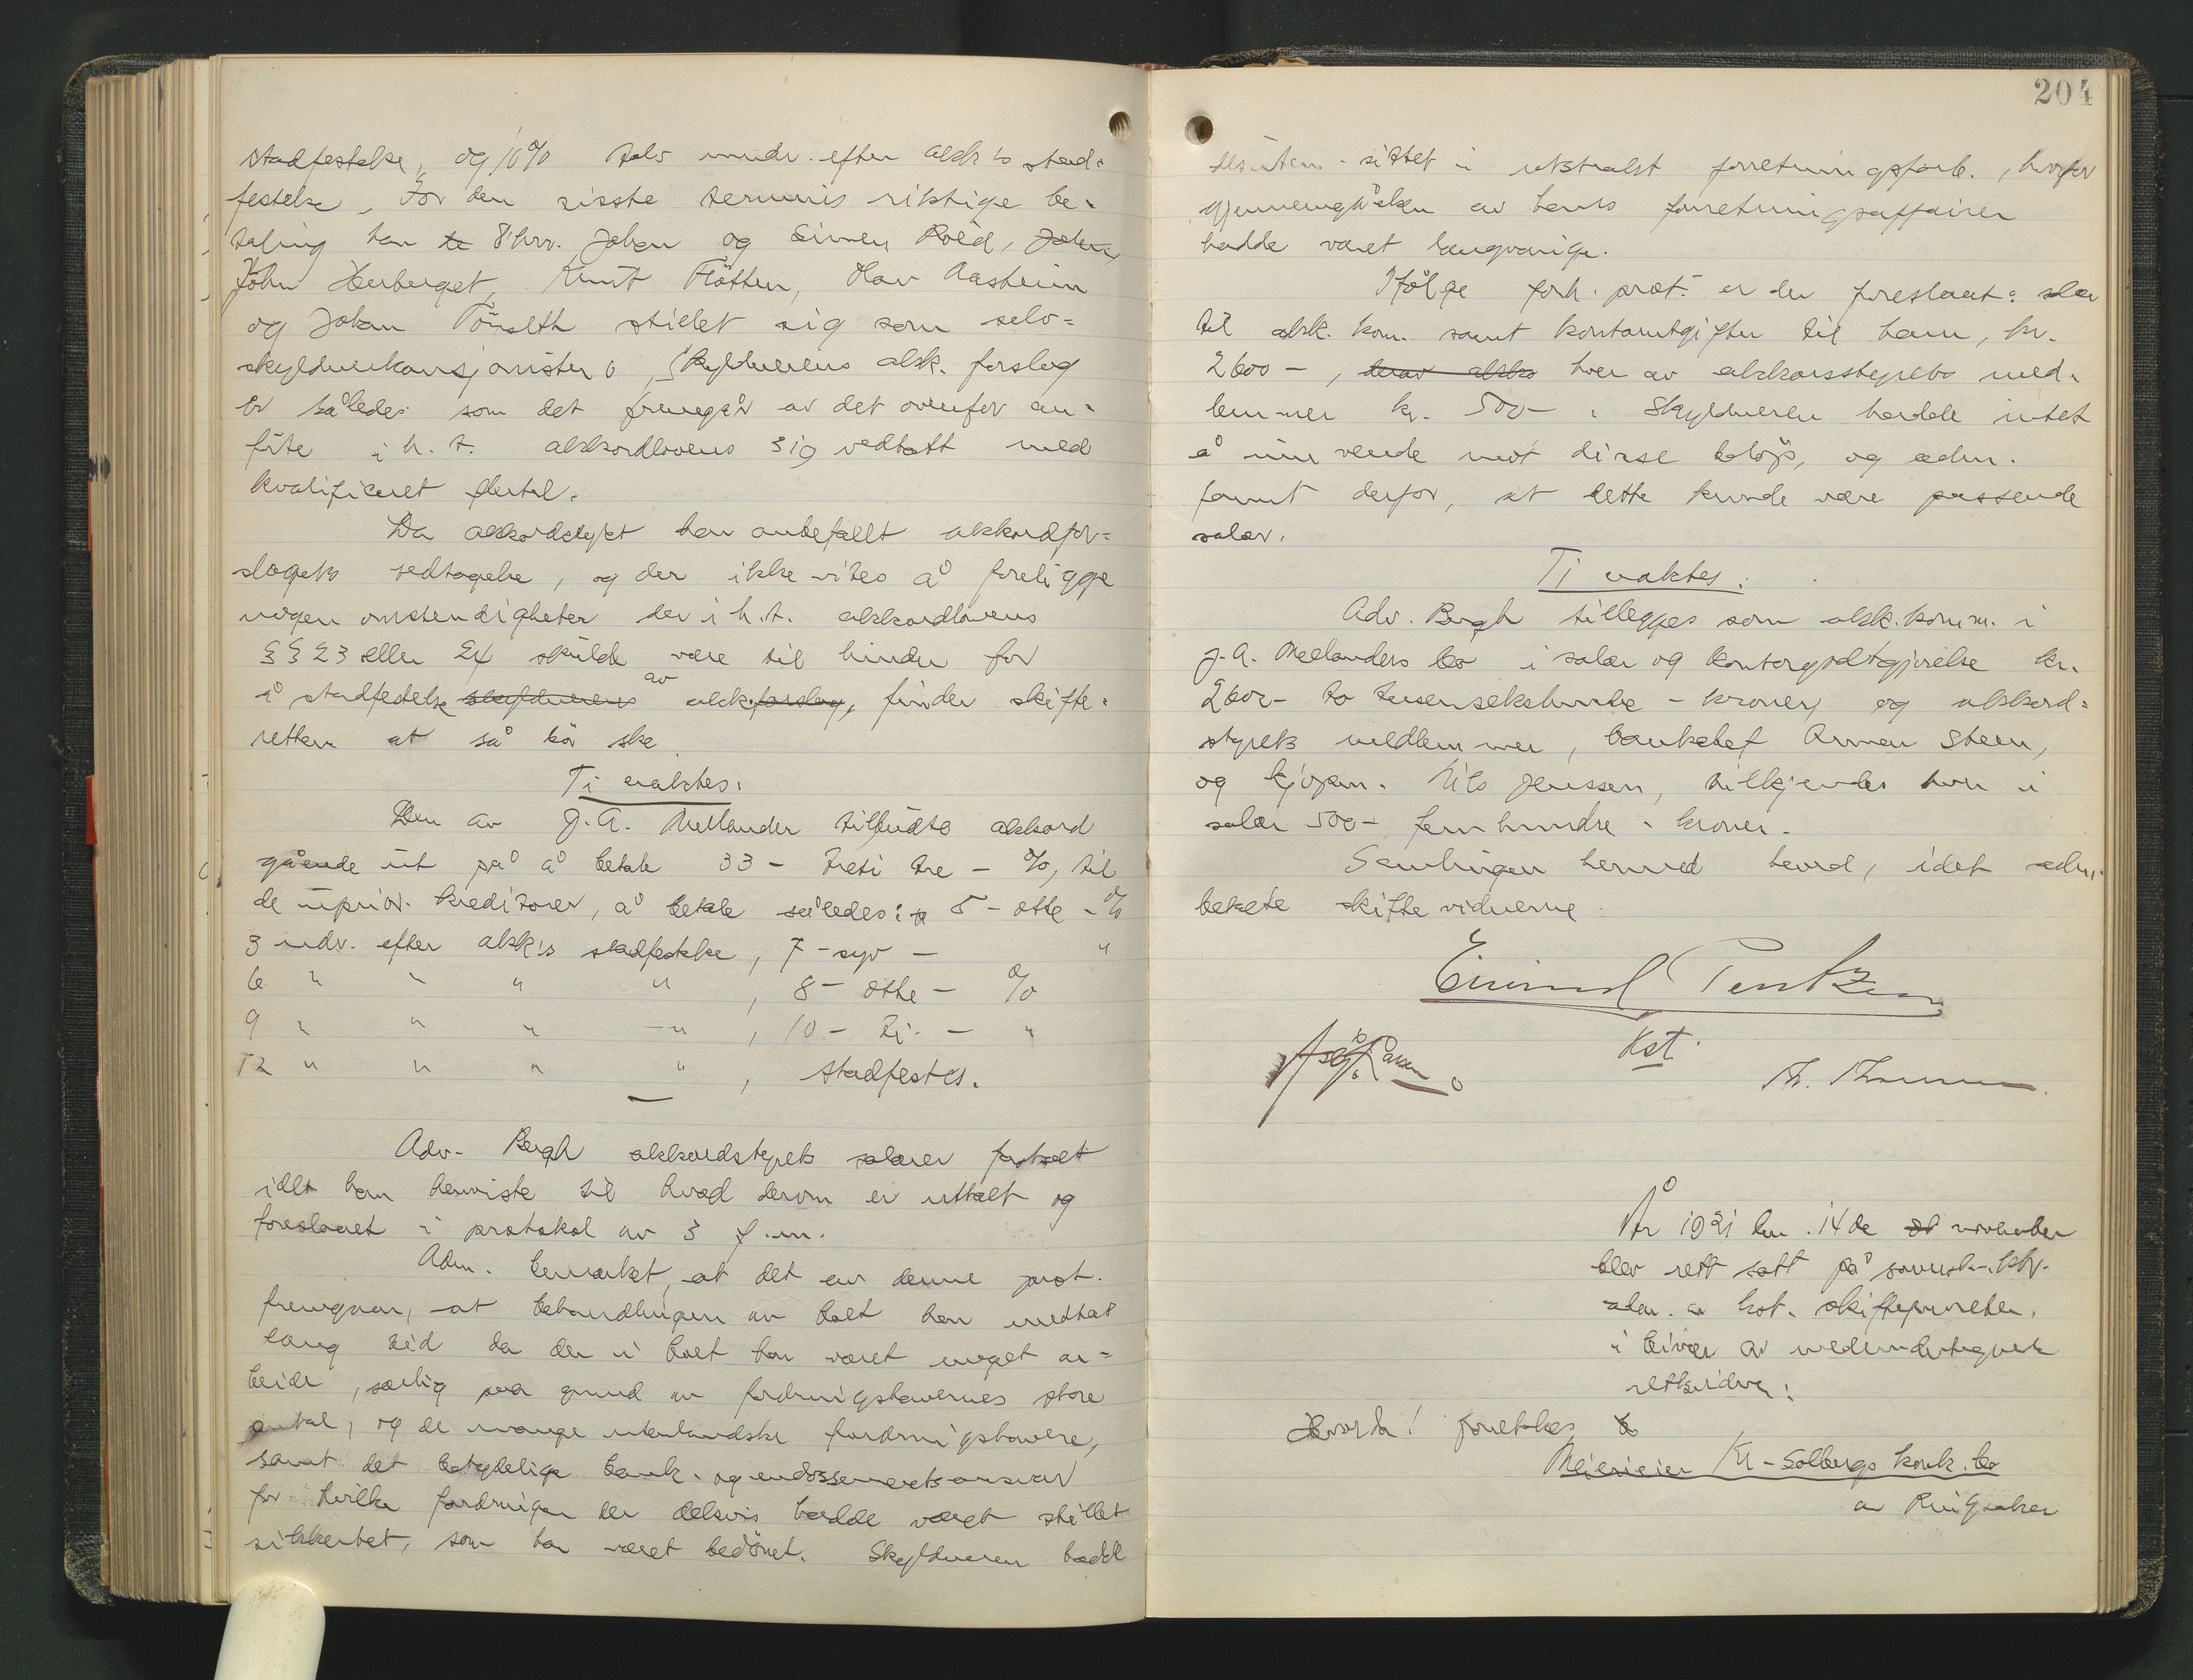 stadfestelse, og 10% tolv mndr. efter akk's stad=
festelse. For den sisste termins riktige be=
taling har te 8 hrr. Johan og Simen Roed, Johan,
John Herberget, Knut Fløtten, Olav Aasheim
og Johan Tönseth stillet sig som selv=
skyldnerkausjonister. Skyldnerens akk. forslag
er således som det fremgår av det ovenfor an=
førte i h. t. akkordlovens § 19 vedtatt med
kvalificeret flertal.
Da akkordstyret har anbefallt akkordfor=
slagets vedtagelse, og der ikke vites å foreligge
nogen omstendigheter der i h. t. akkordlovens
§§ 23 eller 24 skulde være til hinder for
å stadfestelse skyldnerens av akk.forslag, finder skifte=
retten at så bör ske.
Ti eraktes:
Den av J. A. Mellander tilbudte akkord
gående ut på å betale 33 - treti tre - %, til
de uprior. kreditorer, å betale således: 5 - otte - %
3 mdr. efter akk's stadfestelse, 7 - syv - "
6 " " " " , 8 - otte - %
9 " " " " , 10 - ti - "
12 " " " " , stadfestes.
Adv. Bergh akkordstyrets salærer fastsatt
idet han henviste til hvad derom er uttalt og
foreslaaet i protokol av 3 f. m.
Adm. bemerket, at det av denne prot.
fremgaar, at behandlingen av boet har medtat
lang tid da der i boet har været meget ar=
beide, særlig paa grund av fordringshavernes store
antal, og de mange utenlandske fordringshavere,
samt det betydelige bank- og endossements-ansvar
for hvilke fordringer der delvis hadde været stillet
sikkerhet, som har været bedömt. Skyldneren hadde
desuten sittet i utstrakt forretningsforb., hvorfor
gjennemgåelsen av hans forretningsaffairer
hadde været langvarige.
Ifölge forh. prot. er der foreslaat: slær
til akk. kom. samt kontorutgifter til ham, kr.
2600 -, derav akkos hver av akkorsstyrets med=
lemmer kr. 500 - . Skyldneren hadde intet
å inn vende mot disse belöp, og adm.
fannt derfor, at dette kunde være passende
salær.
Ti eraktes:
Adv. Bergh tillegges som akk. komm. i
J. A. Mellanders bo i salær og kontorgodtgjörelse kr.
2600 - to tusenseks hundre - kroner, og akkord=
styrets medlemmer, banksjef Arman Steen,
og kjöpm. Nils Jenssen, tilkjendes hver i
salær 500 - fem hundre - kroner.
Samlingen hermed hevd, idet adm.
betalte skiftevidnerne.
Eivind Pentzen
Kst.
Th. Thomesen.
År 1921 den 14de november
blev rett satt på sorenskr. ktr.
adm. av kst. skifteforvalter,
i beivær av medundertegnede
rettsvidner:
Hvorda! foretokes
Meierieier Kr. Solbergs konk. bo
av Ringsaker
204